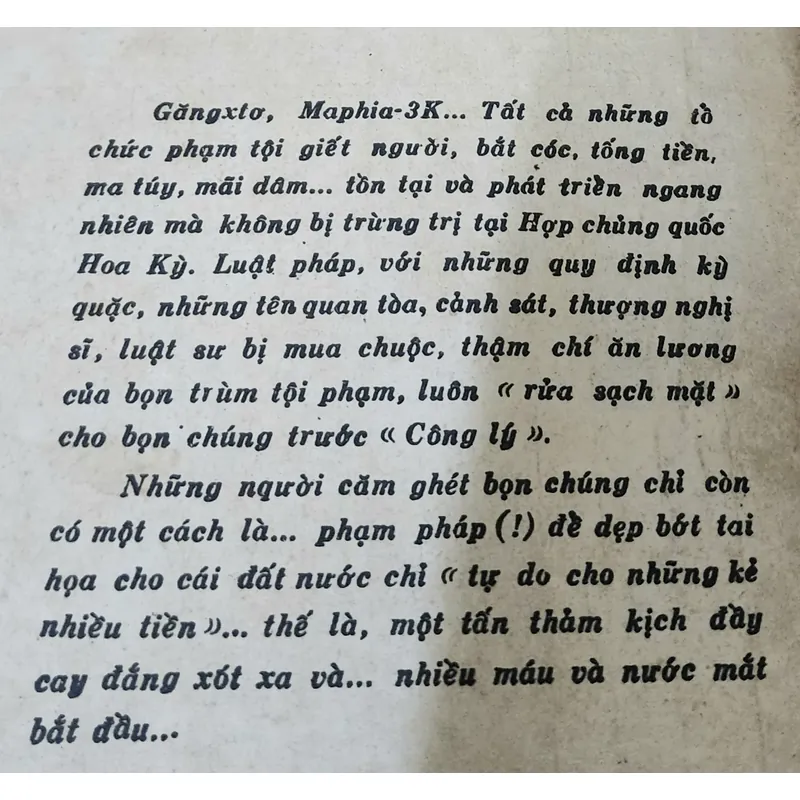 Găngxtơ, Maphia-3K... Tất cả những tổ
chức phạm tội giết người, bắt cóc, tống tiền,
ma túy, mãi dâm... tồn tại và phát triển ngang
nhiên mà không bị trừng trị tại Hợp chủng quốc
Hoa Kỳ. Luật pháp, với những quy định kỳ
quặc, những tên quan tòa, cảnh sát, thượng nghị
sĩ, luật sư bị mua chuộc, thậm chí ăn lương
của bọn trùm tội phạm, luôn « rửa sạch mặt »
cho bọn chúng trước « Công lý ».
Những người căm ghét bọn chúng chỉ còn
có một cách là... phạm pháp (!) để dẹp bớt tai
họa cho cái đất nước chỉ « tự do cho những kẻ
nhiều tiền »... thế là, một tấn thảm kịch đầy
cay đắng xót xa và... nhiều máu và nước mắt
bắt đầu...